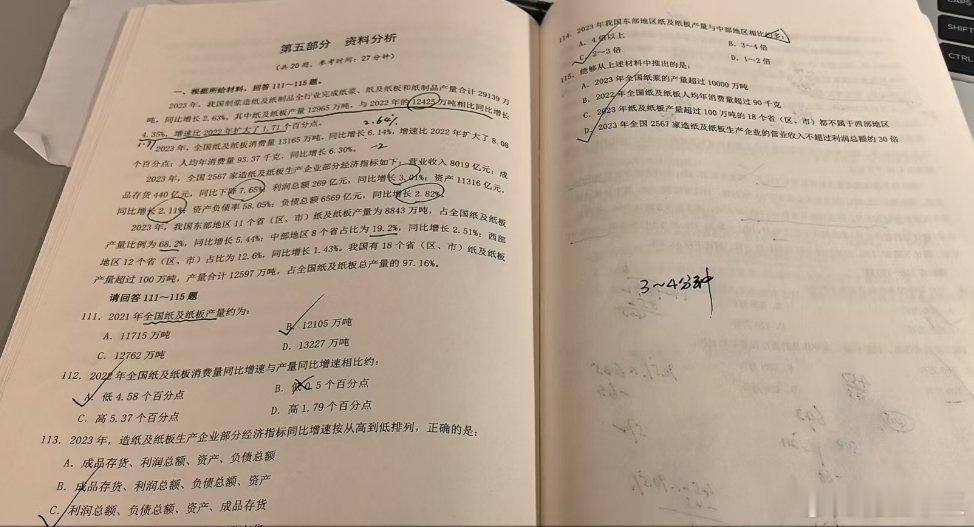 第五部分 资料分析
(共20题，参考时间：27分钟)
一、根据所给材料，回答111～115题。
2023年，我国制浆造纸及纸制品全行业完成纸浆、纸及纸板和纸制品产量合计29139万
吨，同比增长2.63%。其中纸及纸板产量12965万吨，与2022年的12425万吨相比同比增长
4.35%，增速比2022年扩大了1.71个百分点。
2.64%
1.71
2023年，全国纸及纸板消费量13165万吨，同比增长6.14%，增速比2022年扩大了8.08
个百分点；人均年消费量93.37千克，同比增长6.30%。
-2
2023年，全国2567家造纸及纸板生产企业部分经济指标如下：营业收入8019亿元；成
品存货440亿元，同比下降7.65%；利润总额269亿元，同比增长3.01%；资产11316亿元，
同比增长2.11%；资产负债率58.05%；负债总额6569亿元，同比增长2.82%。
2023年，我国东部地区11个省（区、市）纸及纸板产量为8843万吨，占全国纸及纸板
产量比例为68.2%，同比增长5.44%；中部地区8个省占比为19.2%，同比增长2.51%；西部
地区12个省（区、市）占比为12.6%，同比增长1.43%。我国有18个省（区、市）纸及纸板
产量超过100万吨，产量合计12597万吨，占全国纸及纸板总产量的97.16%。
请回答111～115题
111. 2021年全国纸及纸板产量约为：
A. 11715万吨
B. 12105万吨
C. 12762万吨
D. 13227万吨
112. 2022年全国纸及纸板消费量同比增速与产量同比增速相比约：
A. 低4.58个百分点
B. 低0.5个百分点
C. 高5.37个百分点
D. 高1.79个百分点
113. 2023年，造纸及纸板生产企业部分经济指标同比增速按从高到低排列，正确的是：
A. 成品存货、利润总额、资产、负债总额
B. 成品存货、利润总额、负债总额、资产
C. 利润总额、负债总额、资产、成品存货
114. 2023年我国东部地区纸及纸板产量与中部地区相比约多：
A. 4倍以上
B. 3～4倍
C. 2～3倍
D. 1～2倍
115. 能够从上述材料中推出的是：
A. 2023年全国纸浆的产量超过10000万吨
B. 2022年全国纸及纸板人均年消费量超过90千克
C. 2023年纸及纸板产量超过100万吨的18个省（区、市）都不属于西部地区
D. 2023年全国2567家造纸及纸板生产企业的营业收入不超过利润总额的30倍
3～4分钟
CAPS
SHIFT
CTRL